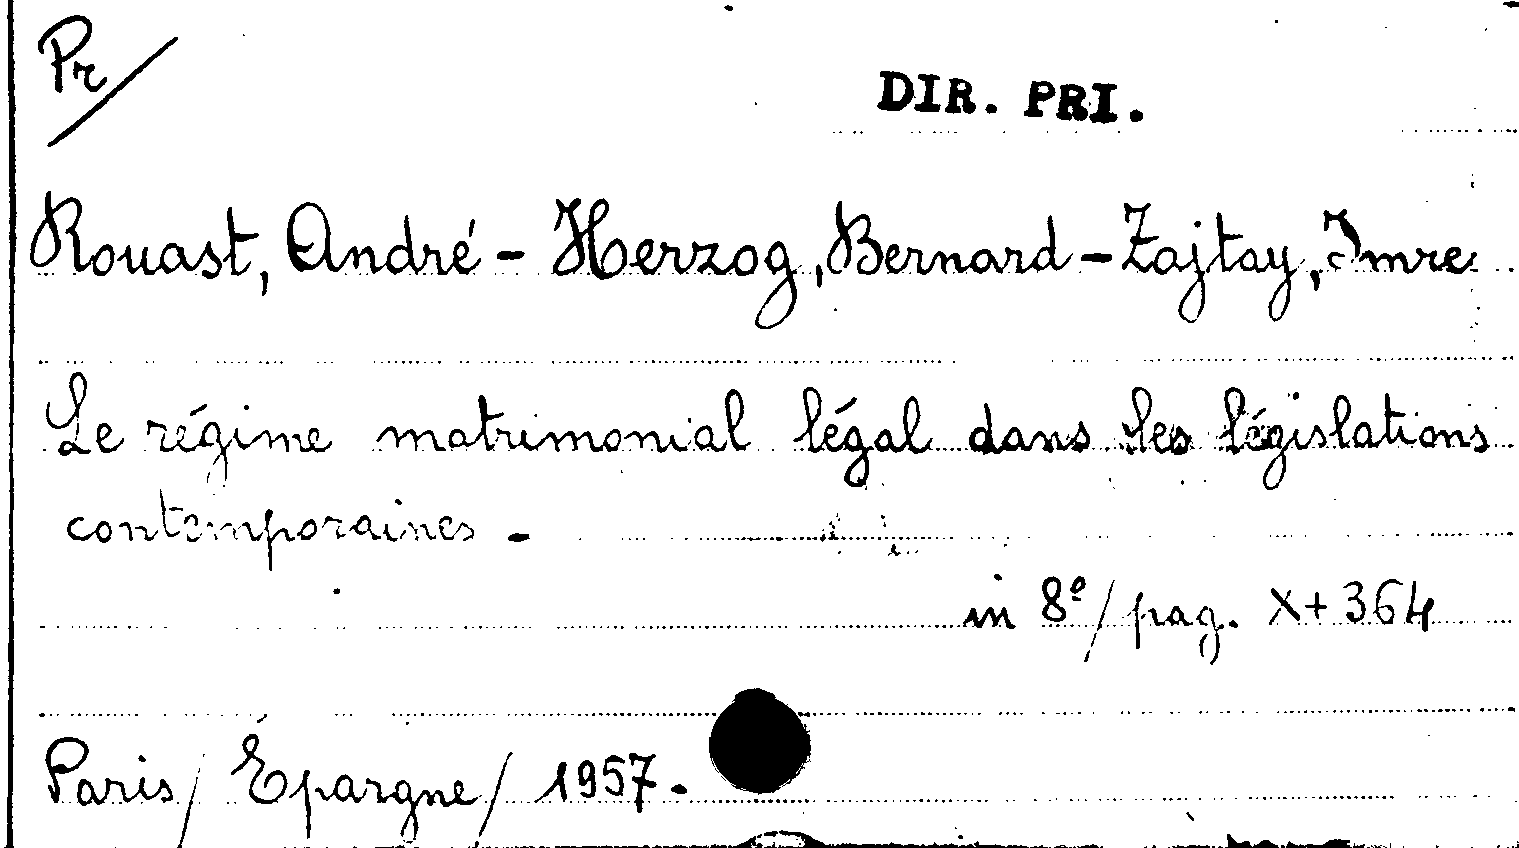 Pr/
DIR. PRI.
Rouast, André - Herzog, Bernard - Zajtay, Imre
Le régime matrimonial légal dans les législations
contemporaines -
in 8º/ pag. X+364
Paris/ Épargne/ 1957.